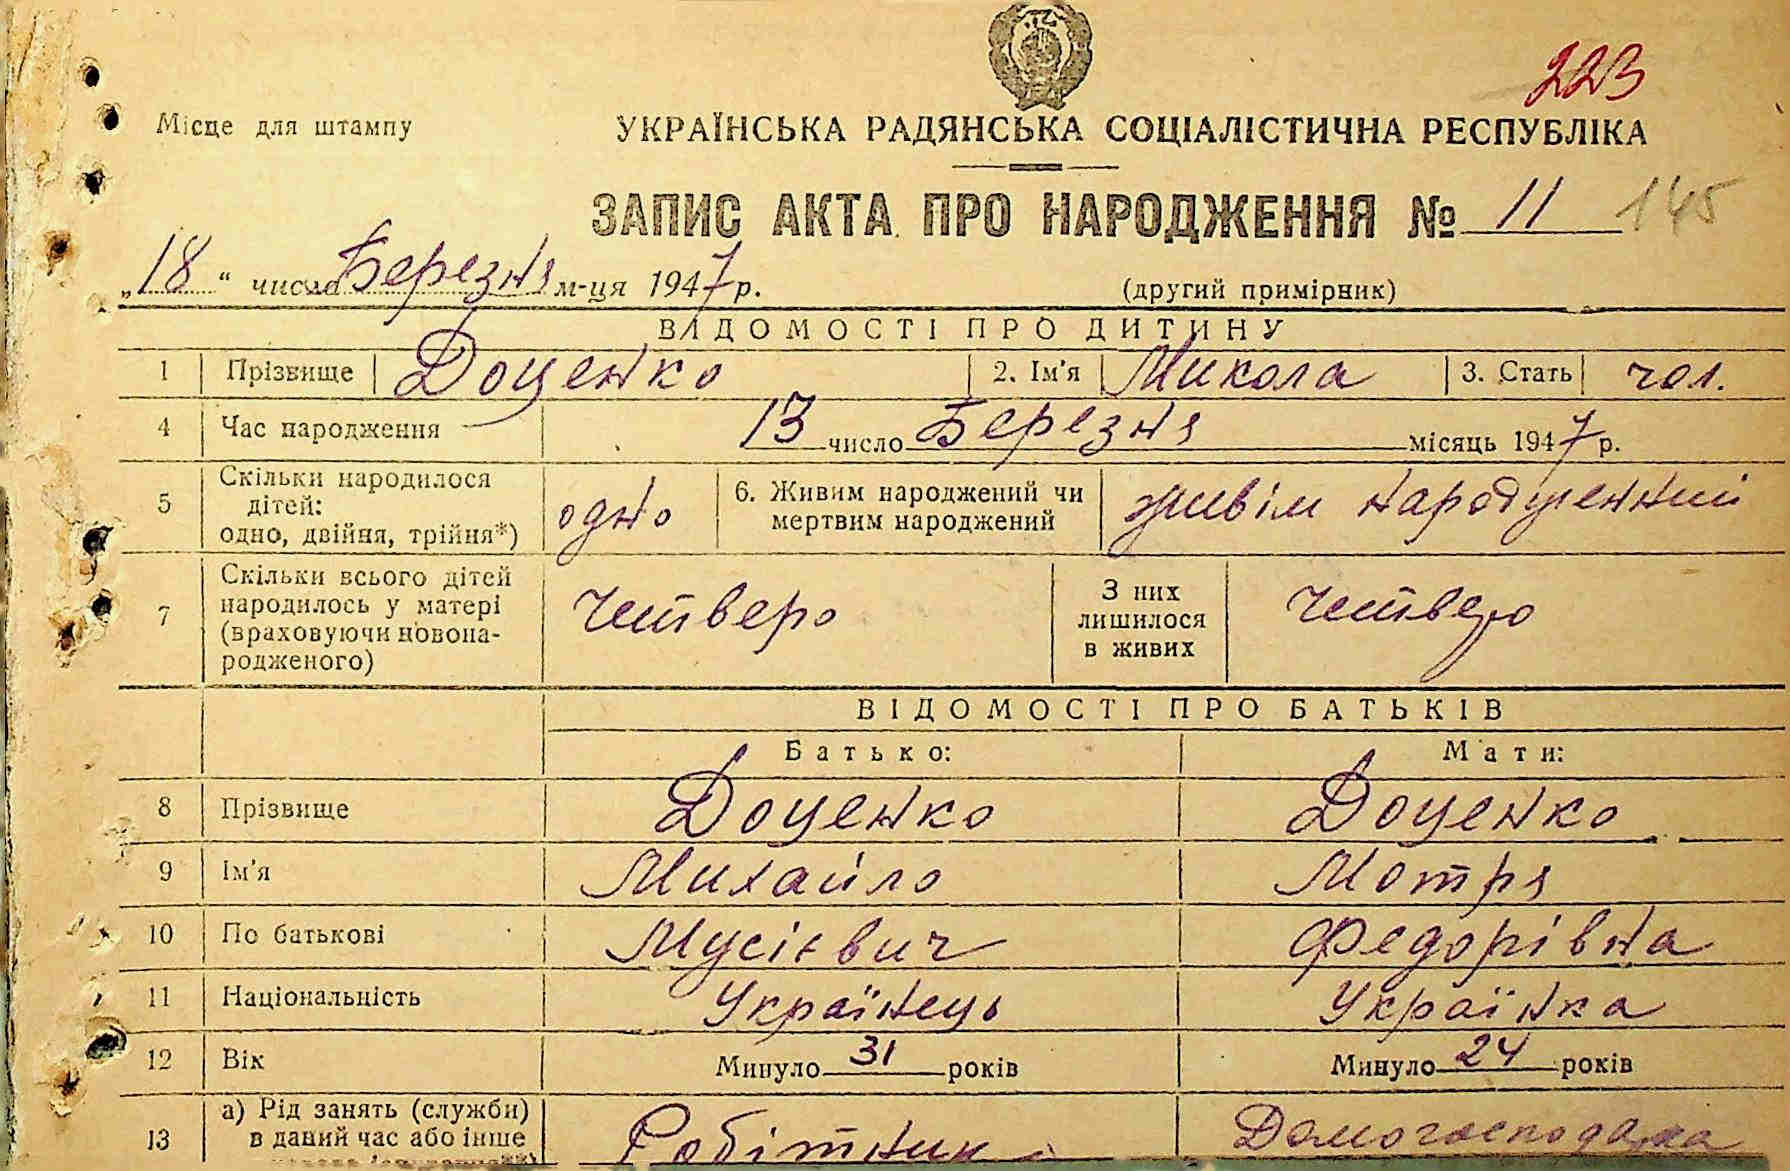 223
Місце для штампу
УКРАЇНСЬКА РАДЯНСЬКА СОЦІАЛІСТИЧНА РЕСПУБЛІКА
ЗАПИС АКТА ПРО НАРОДЖЕННЯ № 11 145
„18“ числа Березня м-ця 1947 р. (другий примірник)
ВІДОМОСТІ ПРО ДИТИНУ
1 Прізвище Доценко 2. Ім'я Микола 3. Стать чол.
4 Час народження 13 число Березня місяць 1947 р.
5 Скільки народилося дітей: одно, двійня, трійня*) одно 6. Живим народжений чи мертвим народжений живім народженний
7 Скільки всього дітей народилось у матері (враховуючи новонародженого) Четверо З них лишилося в живих Четверо
ВІДОМОСТІ ПРО БАТЬКІВ
Батько: Мати:
8 Прізвище Доценко Доценко
9 Ім'я Михайло Мотря
10 По батькові Мусієвич Федорівна
11 Національність Українець Українка
12 Вік Минуло 31 років Минуло 24 років
13 а) Рід занять (служби) в даний час або інше Робітник Домогосподарка